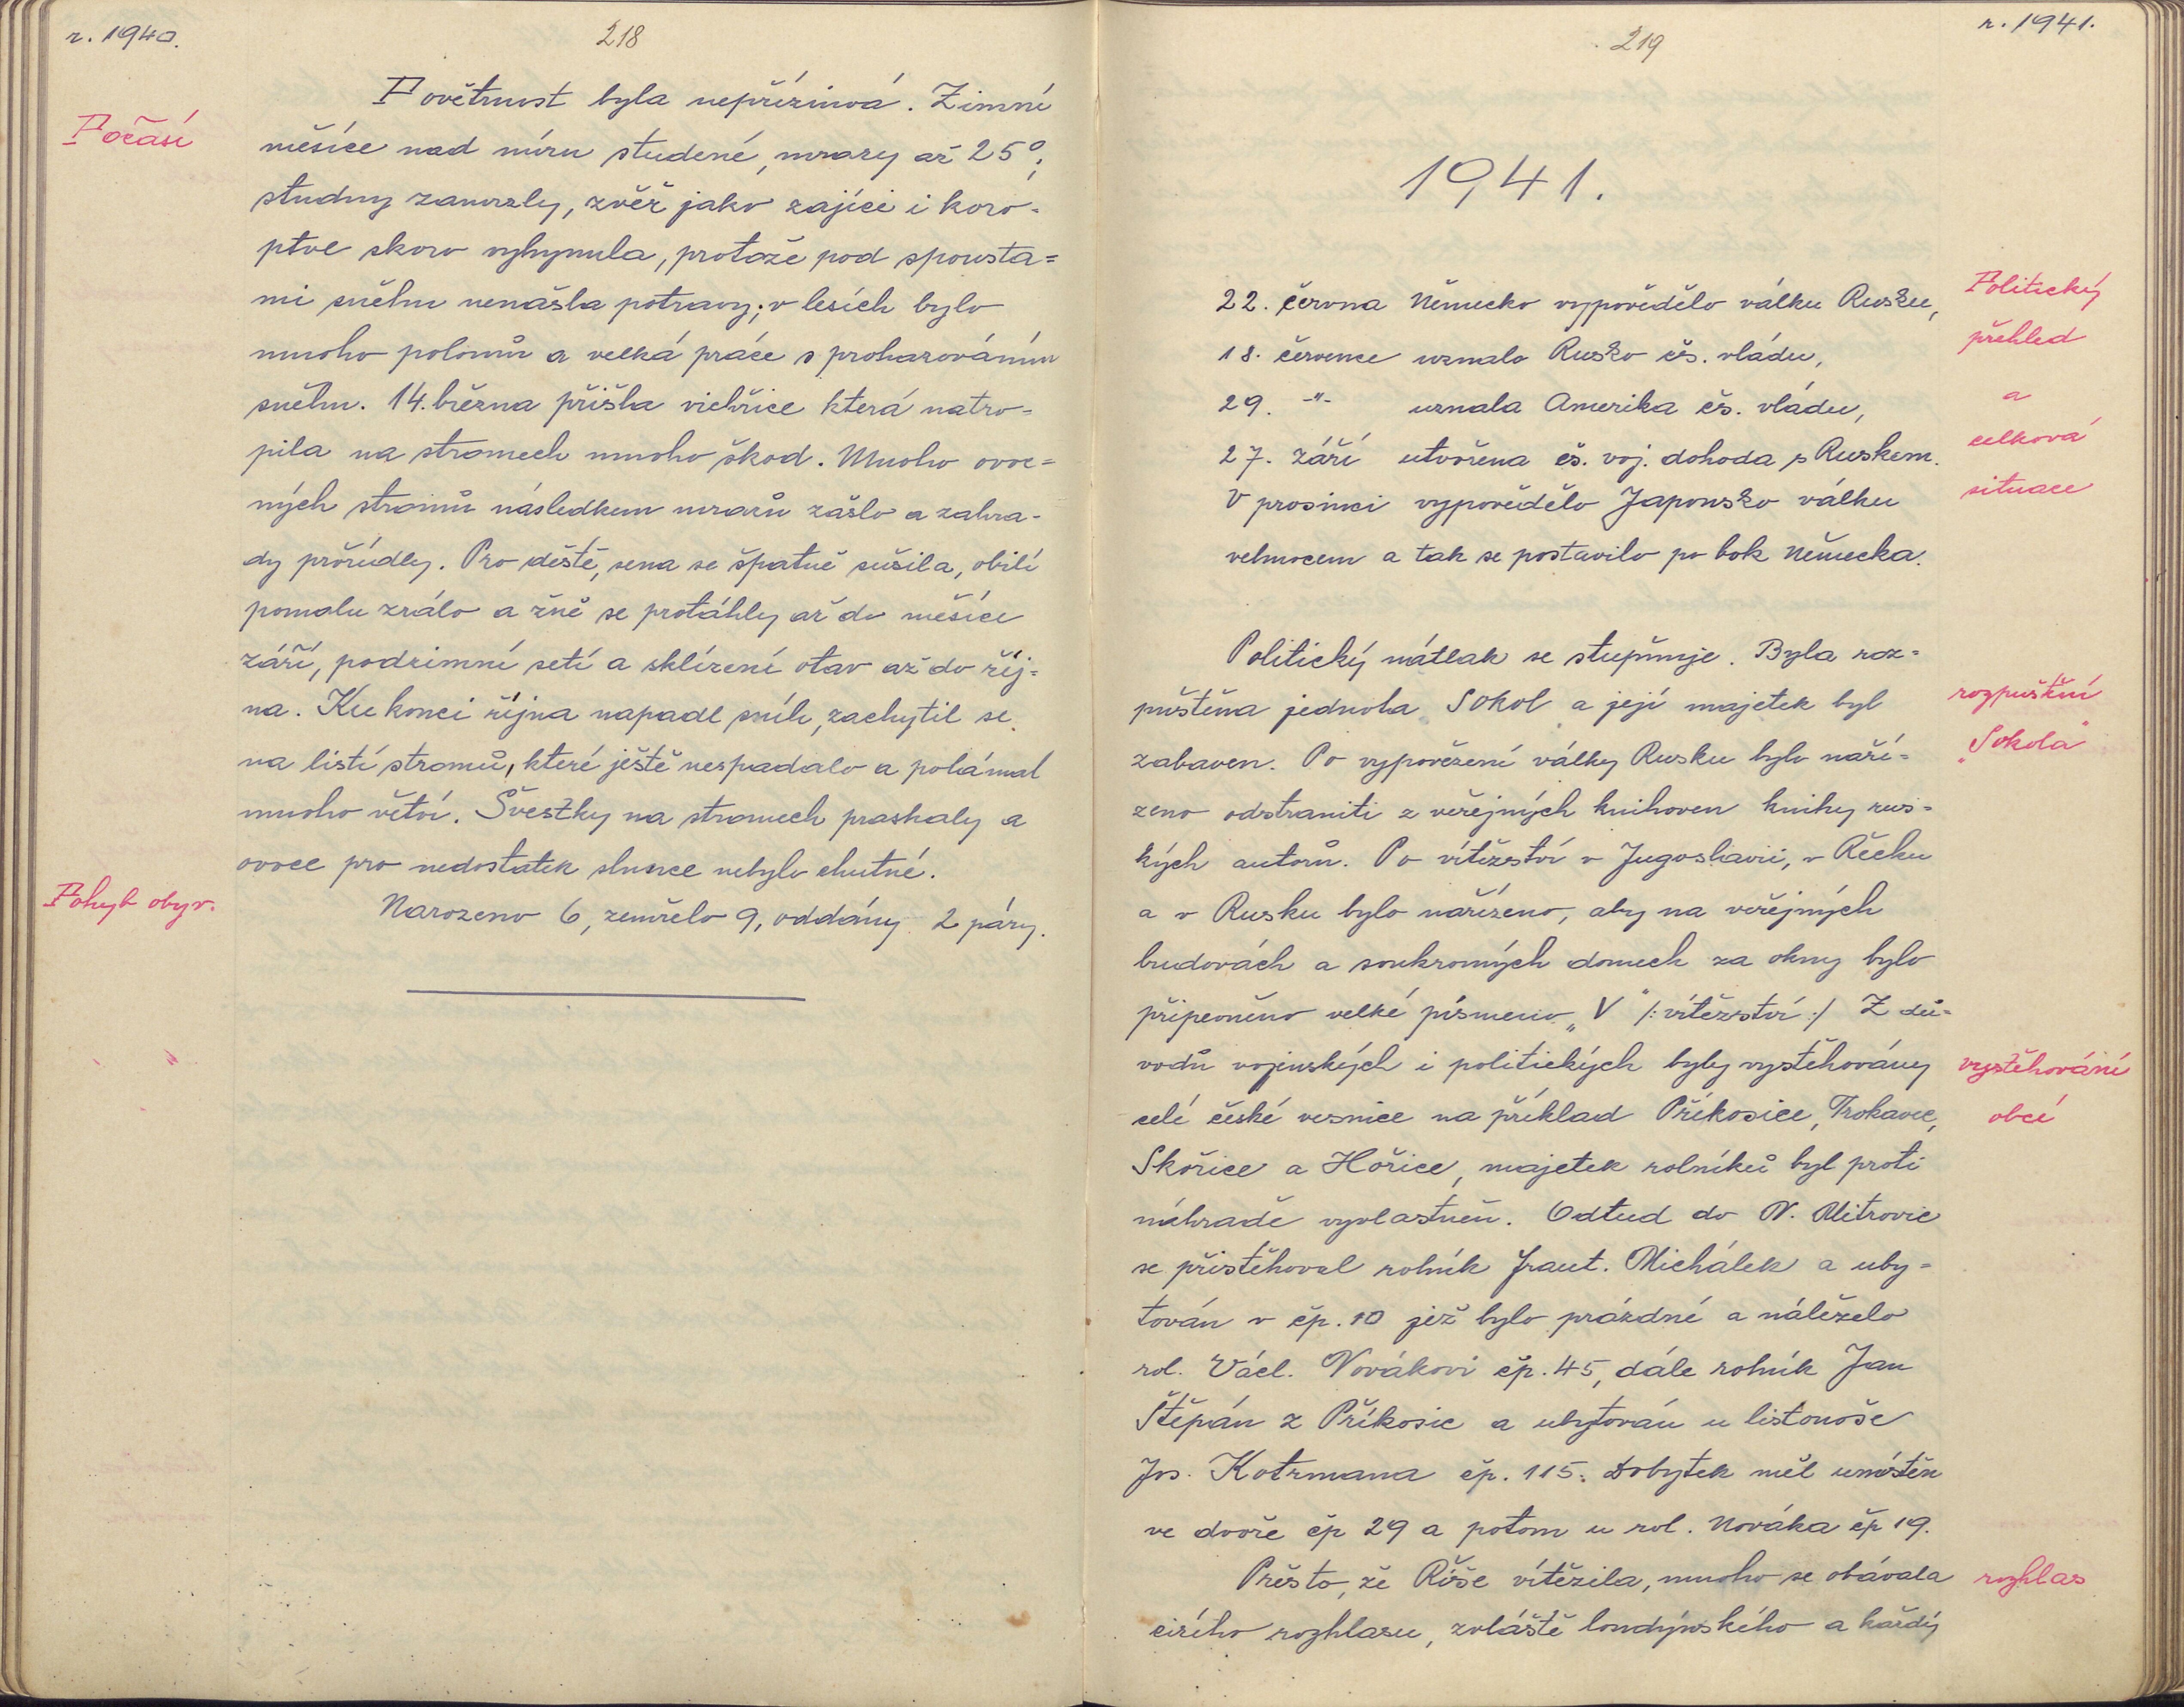 r. 1940.
218
Počasí
Povětrnost byla nepřízinvá. Zimní
měsíce nad míru studené, mrazy až 25°;
studny zamrzly, zvěř jako zajíci i koro-
ptve skoro vyhynula, protože pod spousta=
mi sněhu nenašla potravy; v lesích bylo
mnoho polomů a velká práce s prohazováním
sněhu. 14. března přišla vichřice která natro-
pila na stromech mnoho škod. Mnoho ovoc=
ných stromů následkem mrazů zašlo a zahra-
dy prořídly. Pro deště, sena se špatně sušila, obilí
pomalu zrálo a žně se protáhly až do měsíce
září, podzimní setí a sklízení otav až do říj=
na. Ku konci října napadl sníh, zachytil se
na listí stromů, které ještě nespadalo a polámal
mnoho větví. Švestky na stromech praskaly a
ovoce pro nedostatek slunce nebylo chutné.
Pohyb obyv.
Narozeno 6, zemřelo 9, oddány 2 páry.
219
r. 1941.
1941.
Politický
přehled
a
celková
situace
22. června Německo vypovědělo válku Rusku,
18. července uznalo Rusko čs. vládu,
29. -"- uznala Amerika čs. vládu,
27. září utvořena čs. voj. dohoda s Ruskem.
V prosinci vypovědělo Japonsko válku
velmocem a tak se postavilo po bok Německa.
Politický nátlak se stupňuje. Byla roz=
puštěna jednota Sokol a její majetek byl
rozpuštění
„Sokola"
zabaven. Po vypovězení války Rusku bylo naří=
zeno odstraniti z veřejných knihoven knihy rus=
kých autorů. Po vítězství v Jugoslavii, v Řecku
a v Rusku bylo nařízeno, aby na veřejných
budovách a soukromých domech za okny bylo
připevněno velké písmeno „V" /: vítězství :/ Z dů=
vodů vojenských i politických byly vystěhovány
vystěhování
obcí
celé české vesnice na příklad Příkosice, Trokavec,
Skořice a Hořice, majetek rolníků byl proti
náhradě vyvlastněn. Odtud do N. Mitrovic
se přistěhoval rolník Frant. Michálek a uby=
tován v čp. 10 jež bylo prázdné a náleželo
rol. Václ. Novákovi čp. 45, dále rolník Jan
Štěpán z Příkosic a ubytován u listonoše
Jos. Kotrmana čp. 115. Dobytek měl umístěn
ve dvoře čp 29 a potom u rol. Nováka čp 19.
Přesto, že Říše vítězila, mnoho se obávala
rozhlas
cizího rozhlasu, zvláště londýnského a každý